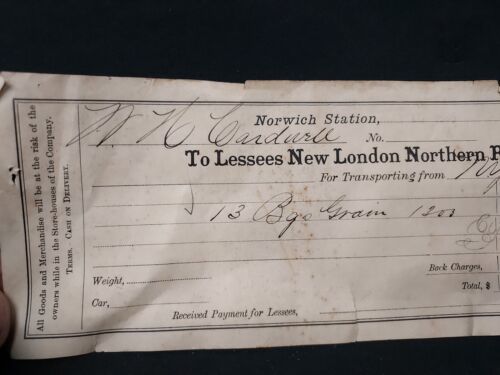 All Goods and Merchandise will be at the risk of the
owners while in the Store-houses of the Company.
TERMS. CASH ON DELIVERY.
Norwich Station,
W. H. Cardwell No.
To Lessees New London Northern
For Transporting from
13 Bgs Grain 1200
Back Charges,
Weight,
Total, $
Car,
Received Payment for Lessees,